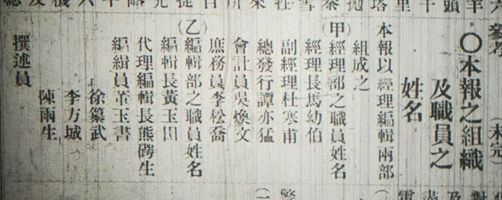 〇本報之組織
及職員之
姓名
本報以經理編輯兩部
組成之
(甲)經理部之職員姓名
經理長馬幼伯
副經理杜寒甫
總發行譚亦猛
會計員吳煥文
庶務員李松喬
(乙)編輯部之職員姓名
編輯長黃玉田
代理編輯長熊
編緝員董玉書
徐纂武
撰述員
李方城
陳雨生